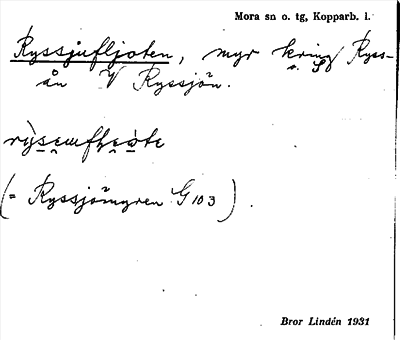 Mora sn o. tg, Kopparb. l.
Ryssjufljoten, myr kring Ryss-
ån V Ryssjön.
(= Ryssjömyren G 103).
Bror Lindén 1931